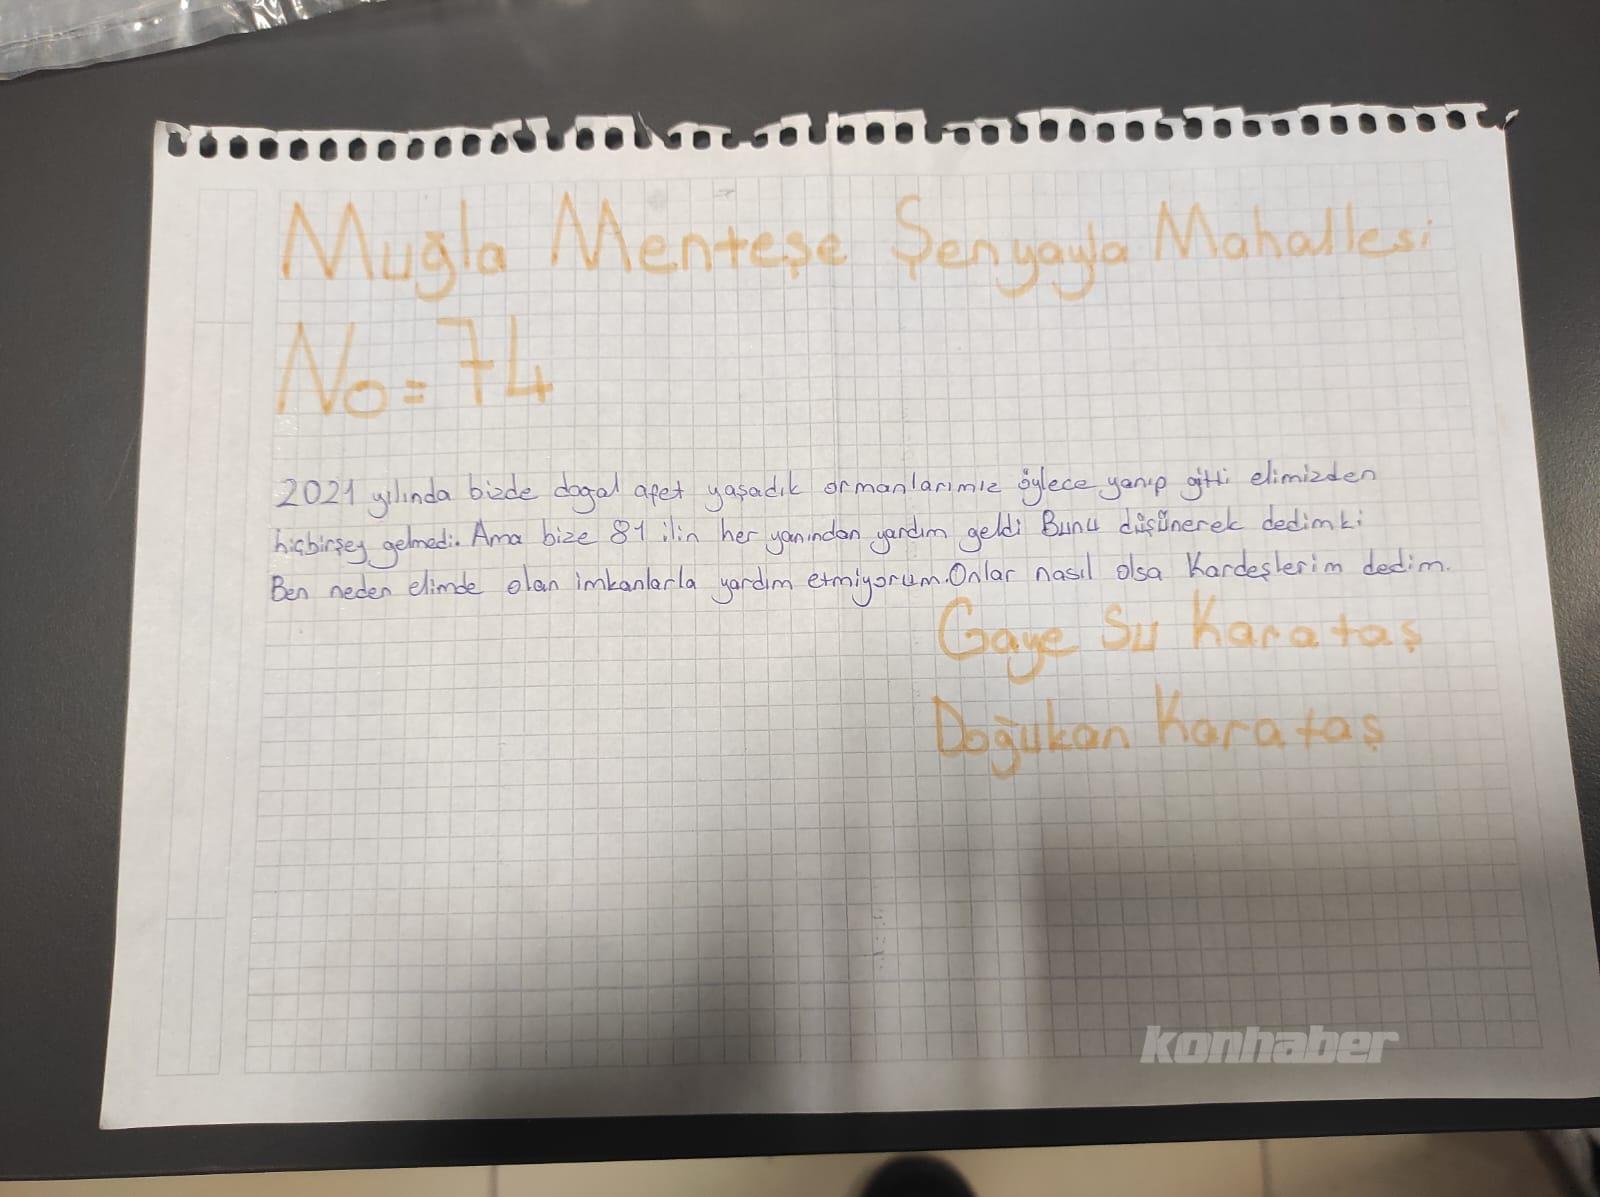 Muğla Menteşe Şenyayla Mahallesi
No=74
2021 yılında bizde dogal afet yaşadık ormanlarımız öylece yanıp gitti elimizden
hiçbirşey gelmedi. Ama bize 81 ilin her yanından yardım geldi Bunu düşünerek dedimki
Ben neden elimde olan imkanlarla yardım etmiyorum. Onlar nasıl olsa Kardeşlerim dedim.
Gaye Su Karataş
Doğukan Karataş
konhaber